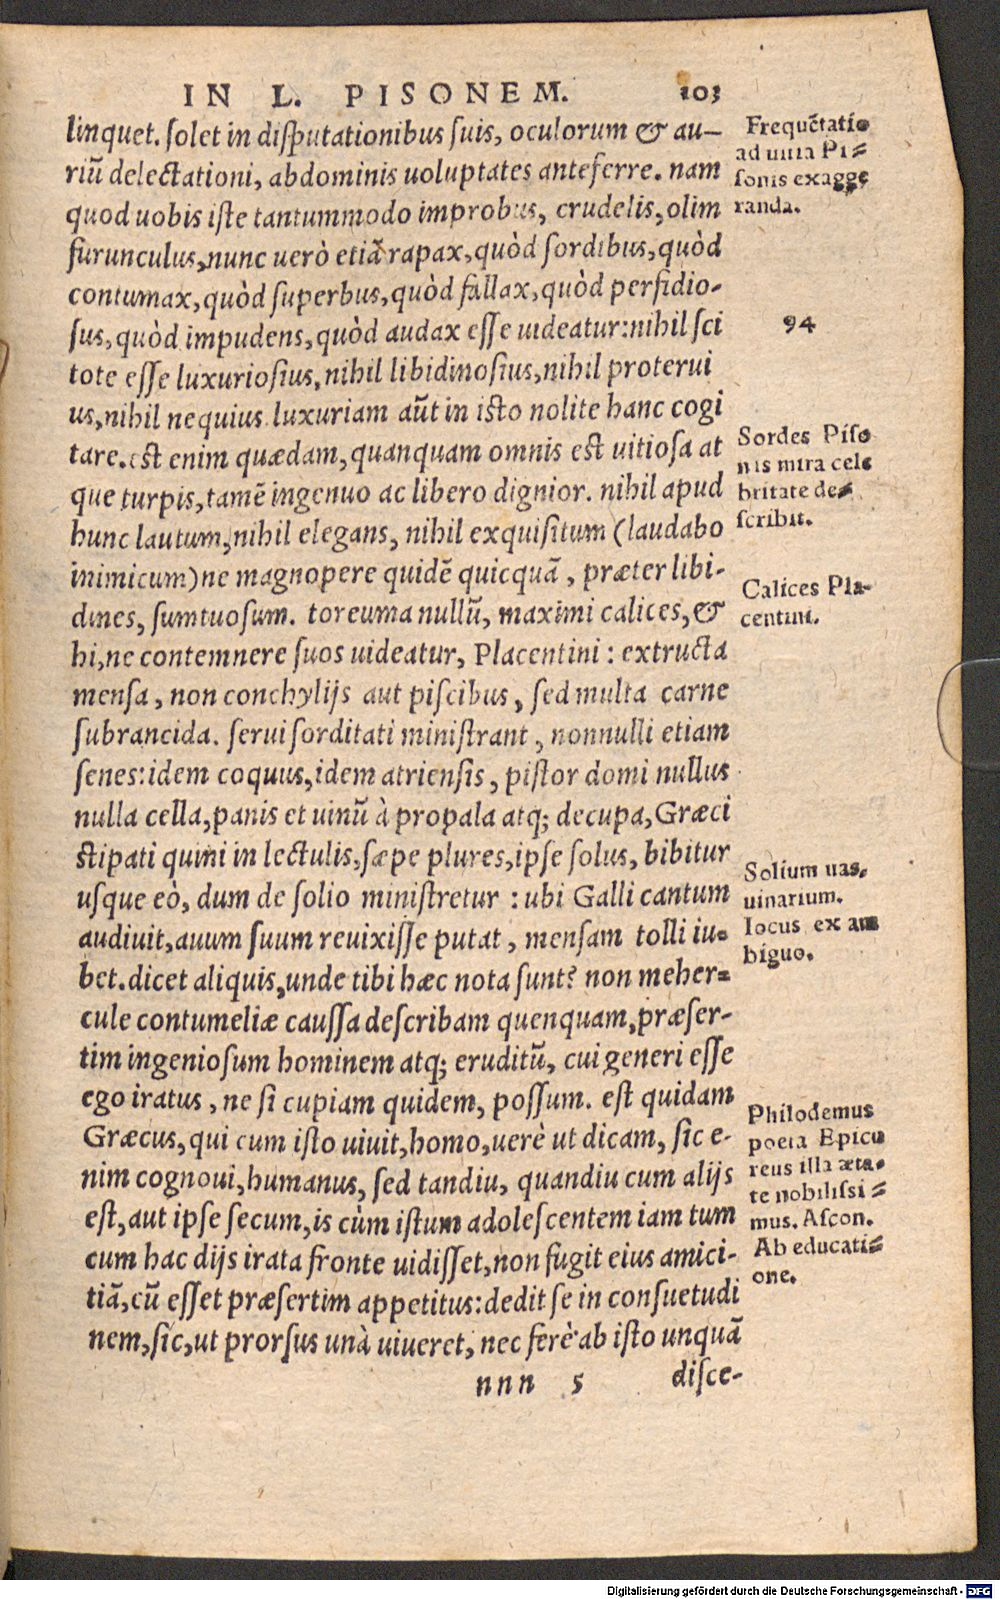 IN L. PISONEM. 103
linquet. solet in disputationibus suis, oculorum & au–
riũ delectationi, abdominis uoluptates anteferre. nam
quod uobis iste tantummodo improbus, crudelis, olim
furunculus, nunc uerò etiã rapax, quòd sordibus, quòd
contumax, quòd superbus, quòd fallax, quòd perfidio-
sus, quòd impudens, quòd audax esse uideatur: nihil sci
tote esse luxuriosius, nihil libidinosius, nihil proterui
us, nihil nequius. luxuriam aũt in isto nolite hanc cogi
tare. est enim quædam, quanquam omnis est uitiosa at
que turpis, tamẽ ingenuo ac libero dignior. nihil apud
hunc lautum, nihil elegans, nihil exquisitum (laudabo
inimicum) ne magnopere quidẽ quicquã, præter libi-
dines, sumtuosum. toreuma nullũ, maximi calices, &
hi, ne contemnere suos uideatur, Placentini: extructa
mensa, non conchylijs aut piscibus, sed multa carne
subrancida. serui sorditati ministrant, nonnulli etiam
senes: idem coquus, idem atriensis, pistor domi nullus
nulla cella, panis et uinũ à propala atq; de cupa, Græci
stipati quini in lectulis, sæpe plures, ipse solus, bibitur
usque eò, dum de solio ministretur: ubi Galli cantum
audiuit, auum suum reuixisse putat, mensam tolli iu-
bet. dicet aliquis, unde tibi hæc nota sunt? non meher-
cule contumeliæ caussa describam quenquam, præser-
tim ingeniosum hominem atq; eruditũ, cui generi esse
ego iratus, ne si cupiam quidem, possum. est quidam
Græcus, qui cum isto uiuit, homo, uerè ut dicam, sic e-
nim cognoui, humanus, sed tandiu, quandiu cum alijs
est, aut ipse secum, is cùm istum adolescentem iam tum
cum hac dijs irata fronte uidisset, non fugit eius amici-
tiã, cũ esset præsertim appetitus: dedit se in consuetudi
nem, sic, ut prorsus unà uiueret, nec ferè ab isto unquã
nnn 5 disce-
Frequẽtatio
ad uitia Pi-
sonis exagge
randa.
94
Sordes Piso
nis mira cele
britate de-
scribit.
Calices Pla-
centini.
Solium uas,
uinarium.
Iocus ex am
biguo.
Philodemus
poeta Epicu
reus illa æta-
te nobilissi-
mus. Ascon.
Ab educati-
one.
Digitalisierung gefördert durch die Deutsche Forschungsgemeinschaft - DFG